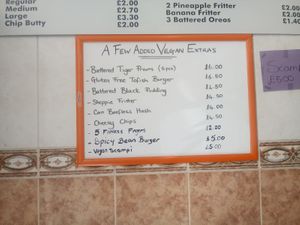 Regular £2.00
Medium £2.70
Large £3.30
Chip Butty £2.00
2 Pineapple Fritter £2.00
Banana Fritter £2.00
3 Battered Oreos £1.40
A Few Added Vegan Extras
- Battered Tiger Prawns (6pcs) £6.00
- Gluten Free Tofish Burger £6.50
- Battered Black Pudding
- Sheppie Fritter
- Can Beefless Hash
- Cheesy Chips
- 5 Fishless Fingers £2.00
- Spicy Bean Burger £5.00
- Vegan Scampi £5.00
Scam
£5.00